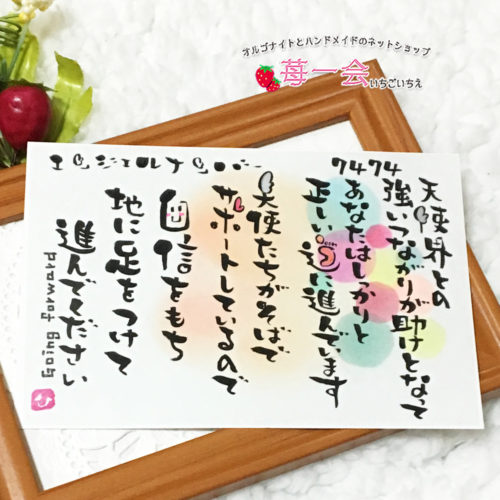 オルゴナイトとハンドメイドのネットショップ
苺一会
いちごいちえ
エンジェルナンバー
7474
天使界との
強いつながりが助けとなって
あなたはしっかりと
正しい道に進んでいます
天使たちがそばで
サポートしているので
自信をもち
地に足をつけて
進んでください
Going forward